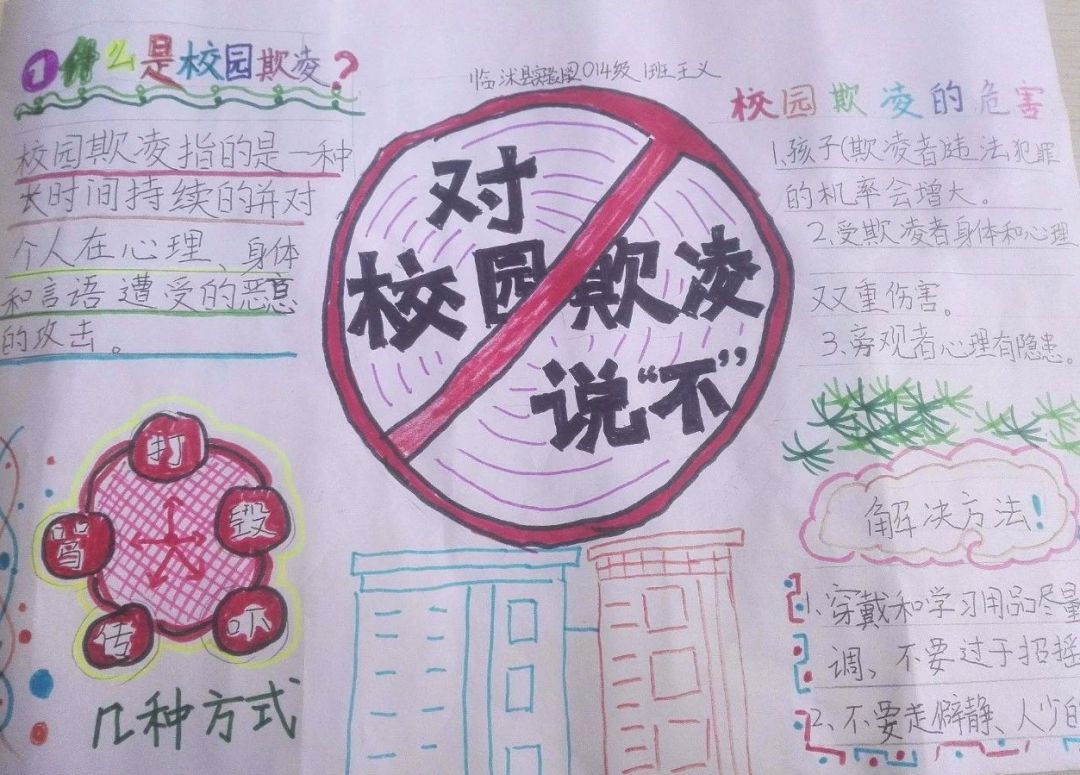 1 什么是校园欺凌?
校园欺凌指的是一种
长时间持续的并对
个人在心理、身体
和言语遭受的恶意
的攻击。
打
毁
骂
传
吓
几种方式
临沭县实验2014级1班王义
对
校园欺凌
说“不”
校园欺凌的危害
1、孩子(欺凌者)违法犯罪
的机率会增大。
2、受欺凌者身体和心理
双重伤害。
3、旁观者心理有隐患。
解决方法!
1、穿戴和学习用品尽量
调、不要过于招摇
2、不要走僻静、人少的